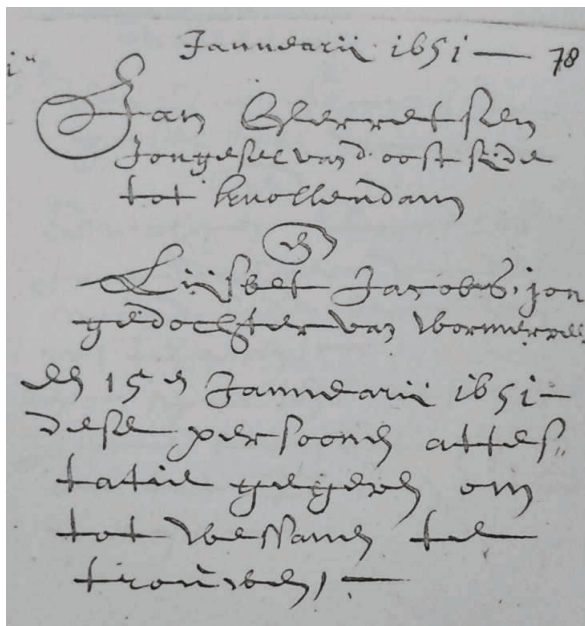 Januarii 1651 — 78
Jan Gerretsen
Jongesel van d oost side
tot knollendam
en
Lijsbet Jacobs, jon
gedochter van Wormerveer
den 15 en Januarii 1651 —
dese persoonen attes„
tatie gegeven om
tot Wessanen te
trouwen, —